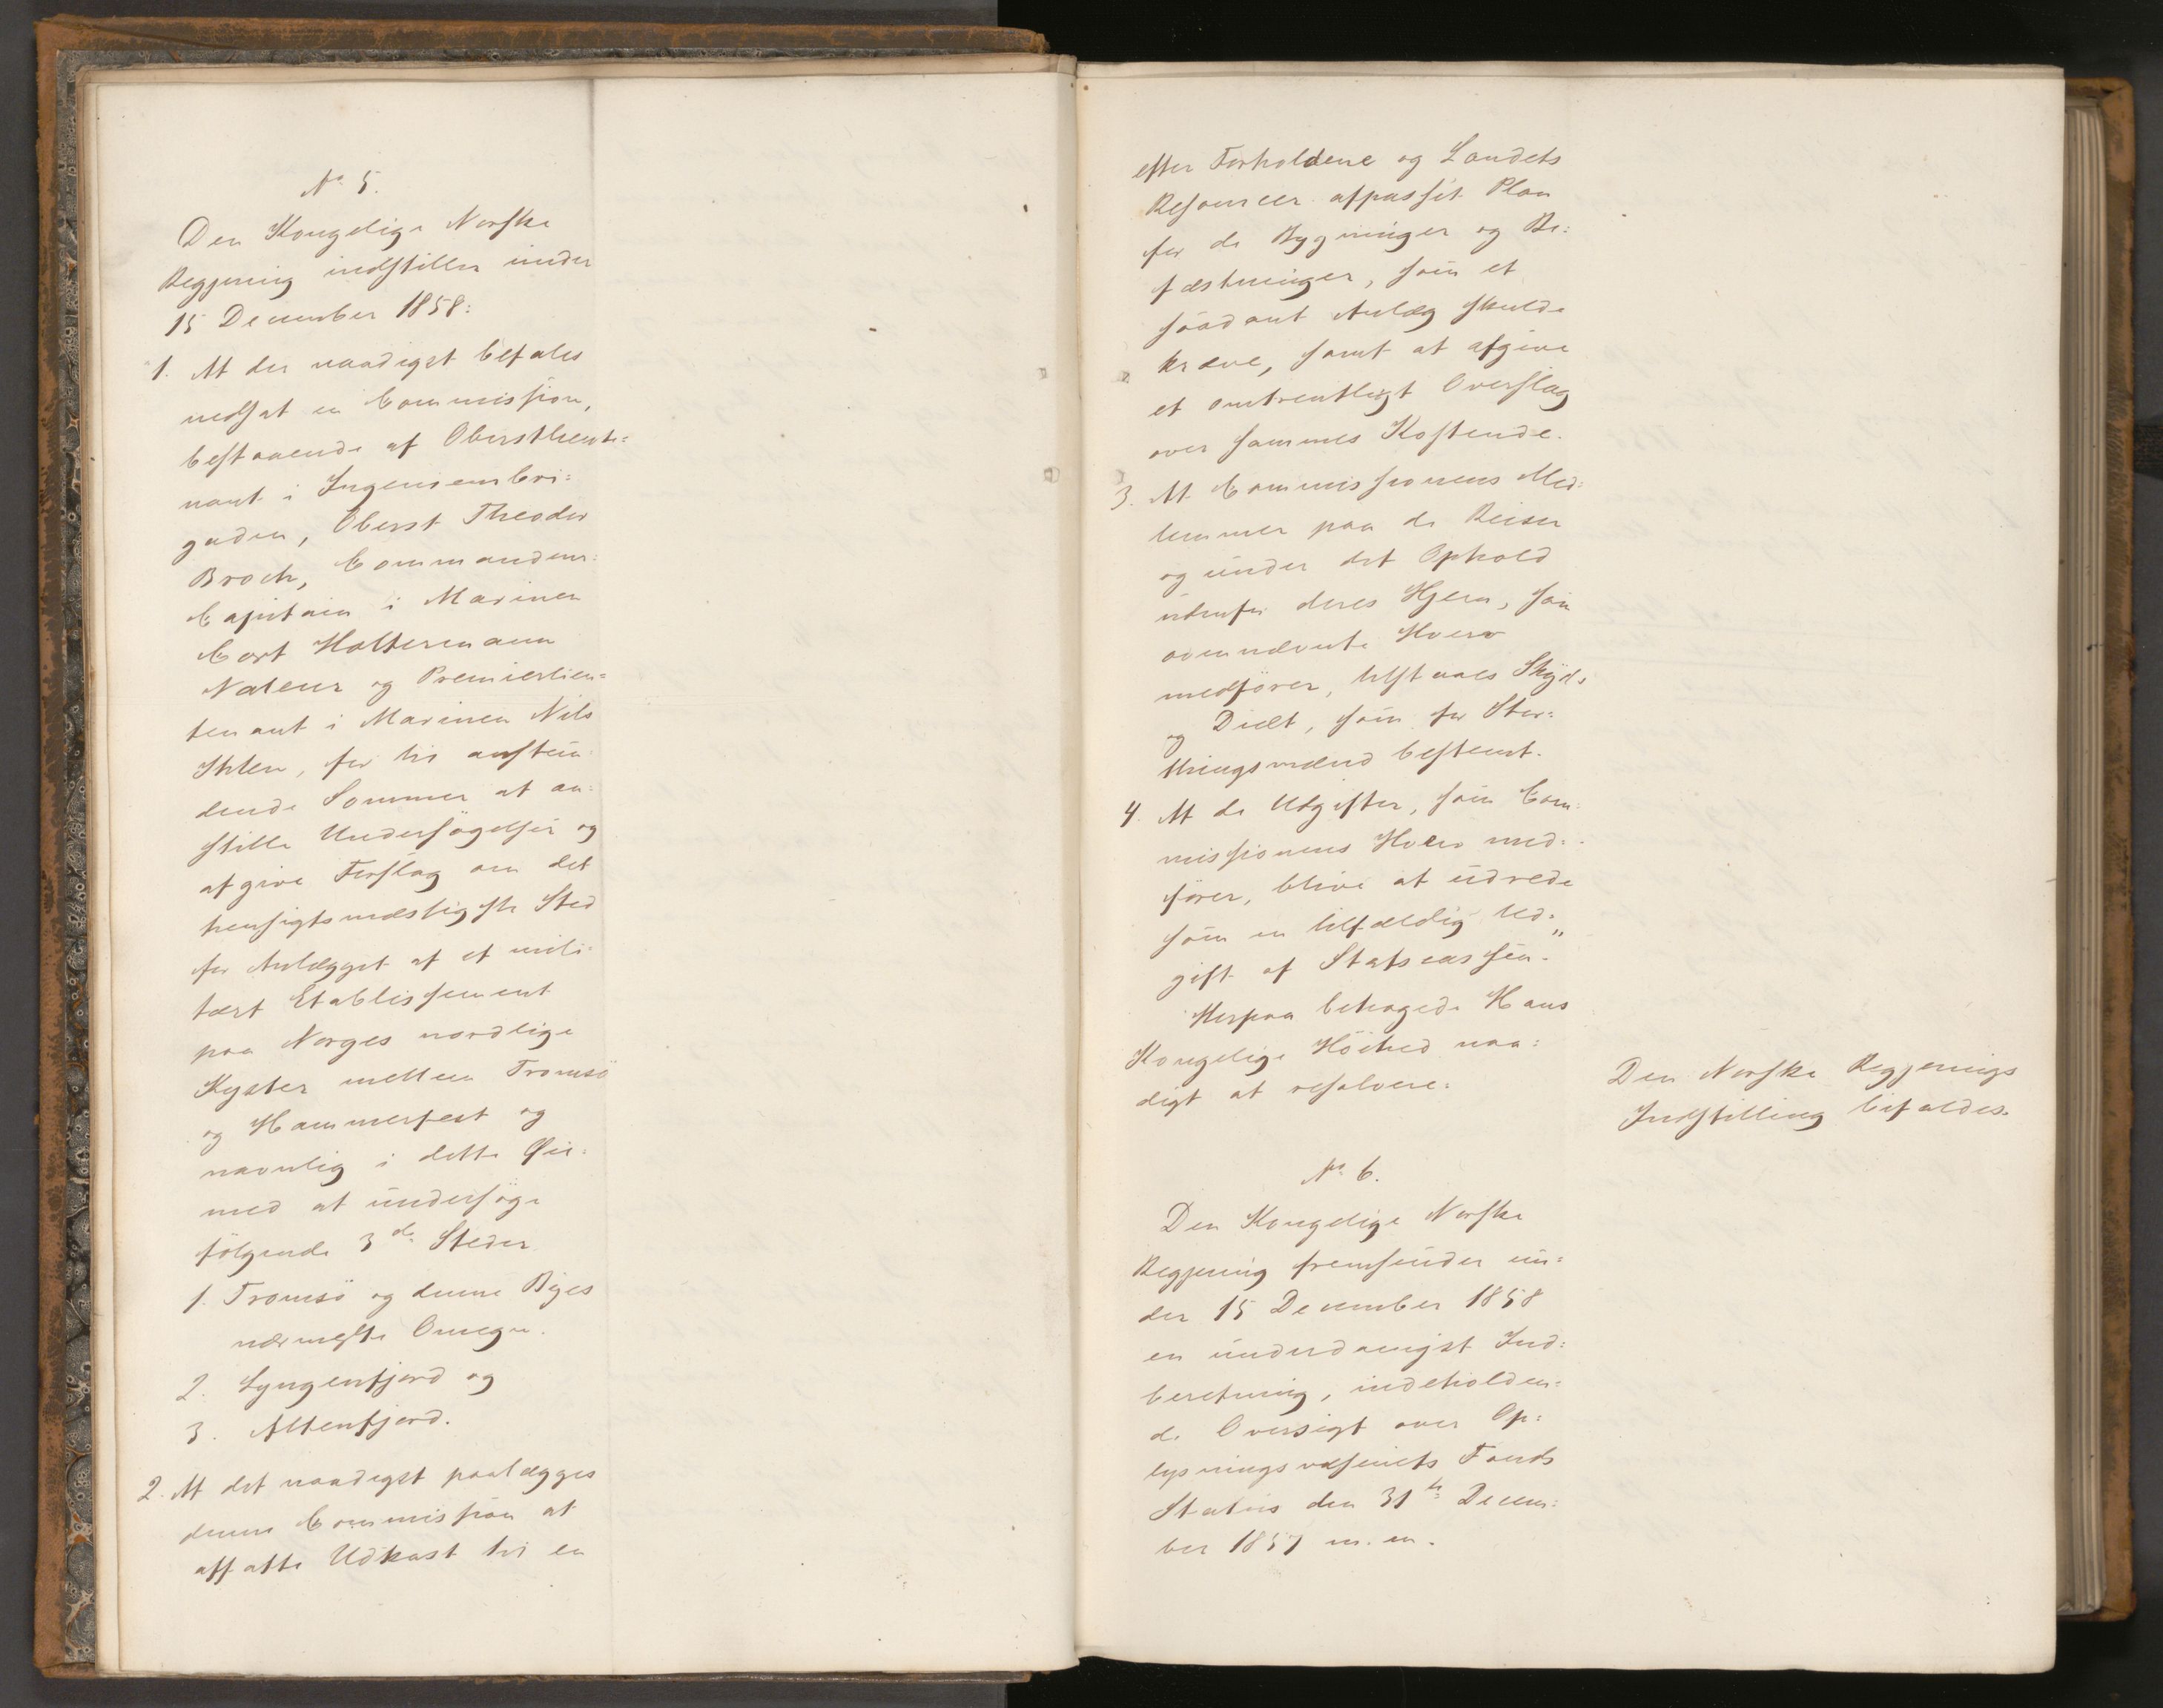 No. 5.
Den Kongelige Norske
Regjering indstiller under
15 December 1858:
1. At der naadigst befales
nedsat en Commission,
bestaaende af Oberstlieute-
nant i Ingenieurbri-
gaden, Oberst Theodor
Broch, Commandeur-
Capitain i Marinen
Cort Holtermann
og Premierlieu-
tenant i Marinen Nils
Ihlen, for til anstun-
dende Sommer at an-
stille Undersøgelser og
afgive Forslag om det
hensigtsmæssigste Sted
for Anlægget af et mili-
tært Etablissement
paa Norges nordlige
Kyster mellem Tromsö
og Hammerfest og
navnlig i dette Øie-
med at undersöge
fölgende 3de Steder
1. Tromsö og denne Byes
nærmeste Omegn.
2. Lyngenfjord og
3. Altenfjord.
2. At det naadigst paalægges
denne Commission at
affatte Udkast til en
efter Forholdene og Landets
Resourcer afpasset Plan
for de Bygninger og Be-
fæstninger, som et
saadant Anlæg skulde
kræve, samt at afgive
et omtrentligt Overslag
over sammes Kostende.
3. At Commissionens Med-
lemmer paa de Reiser
og under det Ophold
udenfor deres Hjem, som
ovennævnte Hverv
medförer, tilstaaes Skyds
og Diæt, som for Stor-
thingsmænd bestemt.
4. At de Udgifter, som Com-
missionens Hverv med-
förer, blive at udrede
som en tilfældig Ud-
gift af Statscassen.
Herpaa behagede Hans
Kongelige Höihed naa-
digt at resolvere:
Den Norske Regjerings
Indstilling bifaldes.
No. 6.
Den Kongelige Norske
Regjering fremsender un-
der 15 December 1858
en underdanigst Ind-
beretning, indeholden-
de Oversigt over Op-
lysningsvæsenets Fonds
Status den 31te Decem-
ber 1857 m. m.